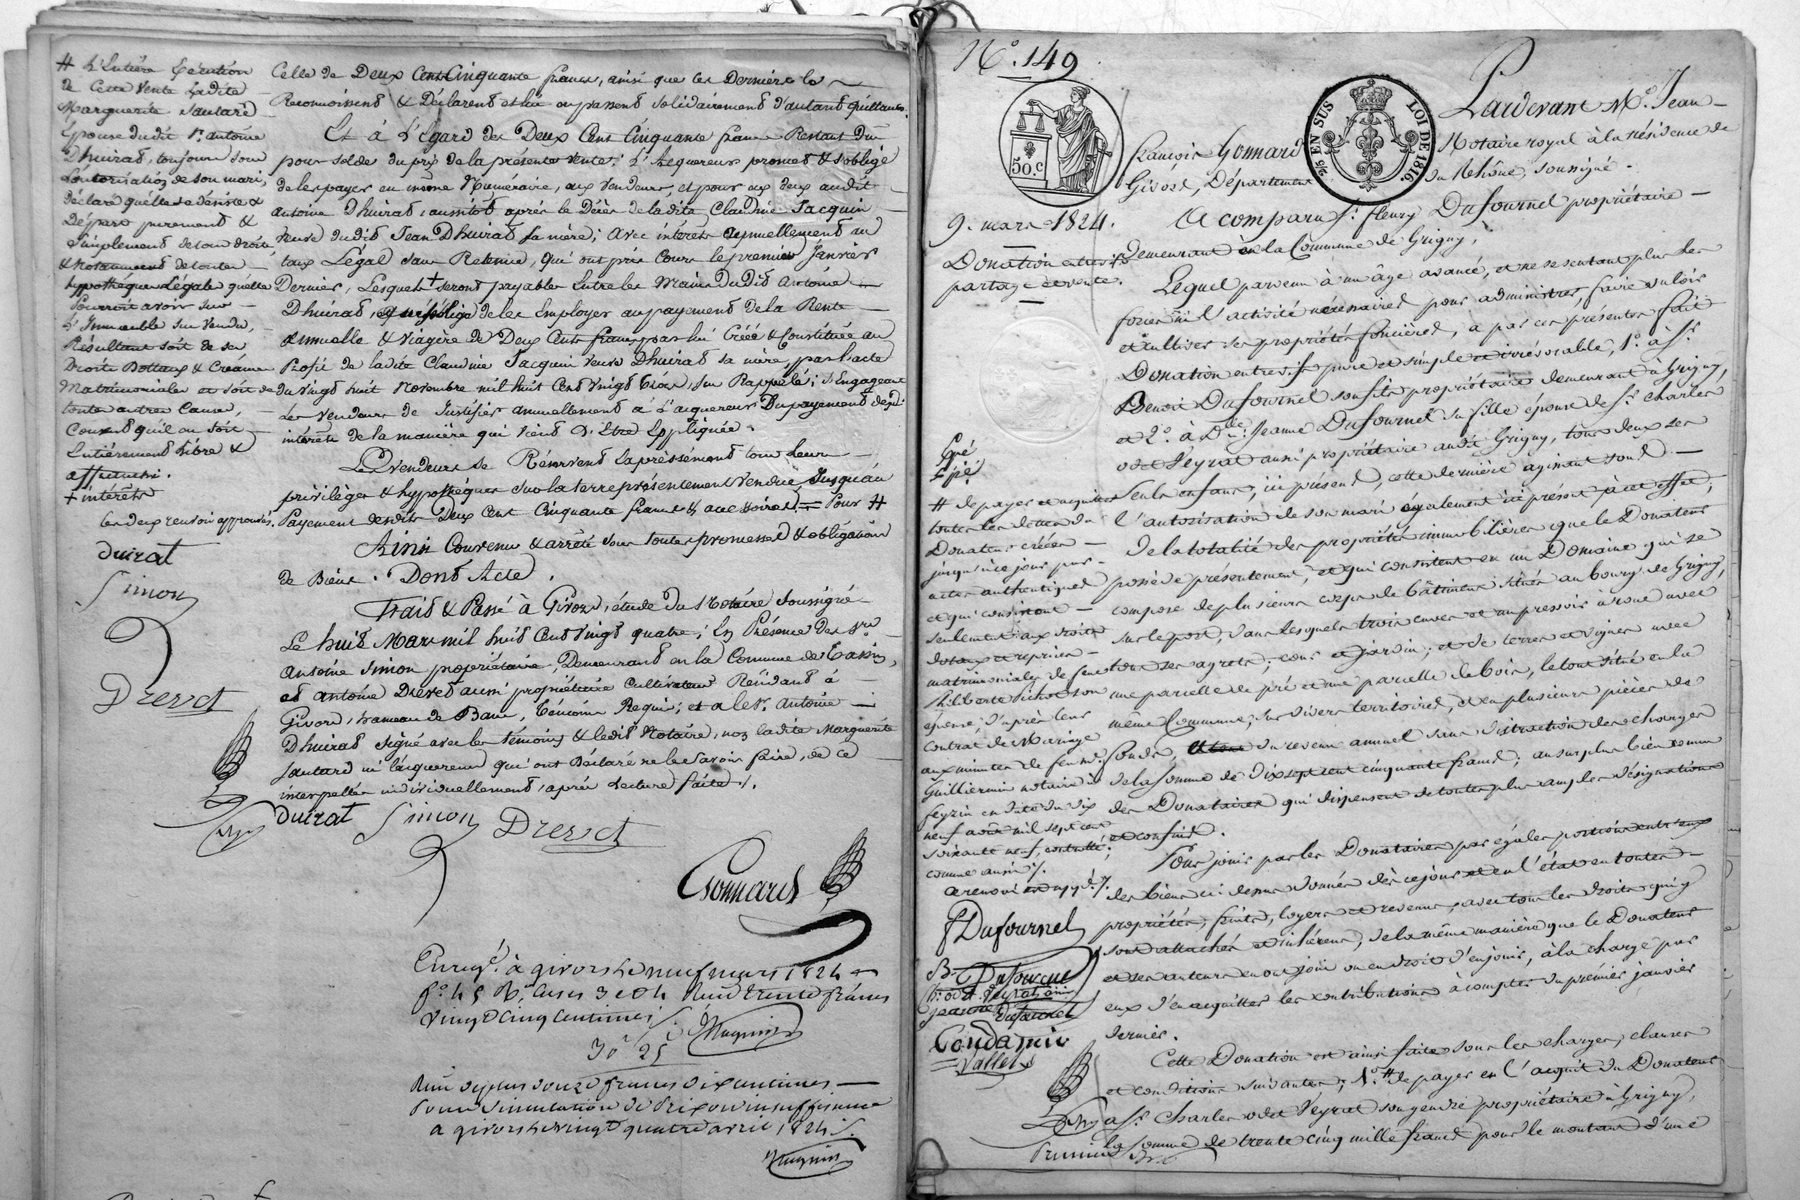 # L'Entière Exécution
de Cette vente Ladite
Marguerite Sautard
Epouse dudit Sr. antoine
Dhuirat, toujours sous
L'autorisation de son mari,
déclare quelle se désiste &
Départ purement &
Simplement de tous droits
& Notamment de toute
hypothèque Légale quelle
Pourroit avoir sur
L'Immeuble Sus vendu,
Résultant soit de ses
Droits Dottaux & Créances
Matrimoniales et soit de
toute autre Cause,
Entièrement libre &
affranchi.
+ intérêts
Les deux renvois approuvés.
Duirat
Simon
Drevet
Celle de Deux Cent Cinquante francs, ainsi que les Derniers le
Reconnoissent & Déclarent et lui en passent solidairement d'autant quittance.
Et à L'Egard des Deux Cent Cinquante francs Restant Du
pour solde du prix de la présente vente, L'acquereur promet & s'oblige
de les payer en même Numéraire, aux vendeurs, et pour eux deux audit
antoine Dhuirat, aussitôt après le Décès de ladite Claudine Jacquin
veuve dudit Jean Dhuirat sa mère; avec intérêts annuellement au
taux Légal sans Retenue, qui ont pris Cours le premier Janvier
Dernier, Lesquels + seront payables Entre les Mains Dudit Antoine
Dhuirat, qui s'oblige de les Employer au payement de la Rente
annuelle & viagère de Deux Cents francs par lui Créée & Constituée au
Profit de ladite Claudine Jacquin veuve Dhuirat sa mère, par l'acte
du vingt huit Novembre mil huit Cent vingt trois, Sus Rappelé; s'Engageant
Les vendeurs de Justifier annuellement à L'acquereur Du payement desdits
intérêts de la manière qui vient d'Etre Expliquée.
Les vendeurs se Réservent Expressément tous leurs
privilèges & hypothèques sur la terre présentement vendue, Jusqu'au
Payement desdits Deux Cent Cinquante francs & accessoires. = Pour #
Ainsi Convenu & arrêté sous toutes promesses & obligations
de Biens. Dont Acte.
Fait & Passé à Givors, étude du Notaire Soussigné
Le huit Mars mil huit Cent vingt quatre; En Présence des Srs
Antoine Simon propriétaire, Demeurant en la Commune de Tassin,
et antoine Drevet aussi propriétaire cultivateur Résidant à
Givors, hameau de Bans, témoins Requis; et a le Sr. Antoine
Dhuirat signé avec les témoins & ledit Notaire, non ladite Marguerite
Sautard ni l'acquereur qui ont Déclaré ne le savoir faire, de ce
interpellés individuellement, après Lecture faite.
Duirat Simon Drevet
Gonnard
Enregé. à givors le neuf mars 1824
fo. 45 Vo. Cases 3 et 4 Reçu trente francs
vingt cinq centimes
30 f 25
Reçu de plus douze francs dix centimes
Pour Simulation de Prix ou insuffisance
a givors le vingt quatre avril 1824.
No. 149
50 c
25/c EN SUS LOI DE 1816.
9. mars 1824.
Donation entrevifs
partage et vente.
Pardevant Me. Jean
François Gonnard Notaire royal à la résidence de
Givors, Département du Rhône, soussigné.
A comparu Sr. fleury Dufournel propriétaire
demeurant en la Commune de Grigny,
Lequel parvenu à un âge avancé, et ne se sentant plus les
forces ni l'activité nécessaires pour administrer, faire valoir
et cultiver ses propriétés foncières, a par ces présentes fait
Donation entrevifs pure et simple et irrévocable, 1o. à Sr.
Benoît Dufournel son fils propriétaire demeurant à Grigny,
et 2o. à Dlle. Jeanne Dufournel sa fille épouse de Sr. Charles
odet Peyrat aussi propriétaire audit Grigny, tous deux ses
seuls enfans, ici présens, cette dernière agissant sous
l'autorisation de son mari également ici présent à cet effet;
De la totalité des propriétés immobilières que le Donateur
possède présentement, et qui consistent en un Domaine qui se
compose de plusieurs corps de bâtimens situés au bourg de Grigny,
sur le port, dans lesquels trois cuves et un pressoir à roue avec
tous ses agrets; cour et jardin; et de terres et vignes avec
une parcelle de pré et une parcelle de bois, le tout situé en la
même Commune, sur divers territoires, et en plusieurs pièces de
fonds, du revenu annuel sans distraction des charges
de la somme de dix sept cent cinquante francs; au surplus bien connu
des Donataires qui dispensent de toutes plus amples désignations
et confins.
Pour jouir par les Donataires par égales portions entr'eux
des biens ci dessus donnés dès ce jour et en l'état en toutes
propriétés, fruits, loyers et revenus, avec tous les droits qui y
sont attachés et inhérens, de la même manière que le Donateur
et ses auteurs en ont joui ou eu droit d'en jouir, à la charge par
eux d'en acquitter les contributions à compter du premier janvier
dernier.
Cette Donation est ainsi faite sous les charges, clauses
et conditions suivantes; 1o. # de payer en l'acquit du Donateur
à Sr. Charles odet Peyrat son gendre propriétaire à Grigny,
la somme de trente cinq mille francs pour le montant d'une
# de payer et acquitter
toutes les dettes du
Donateur créées
jusqu'à ce jour par
actes authentiques
et qui consistent
seulement aux droits
dotaux et reprises
matrimoniales de feue
son
épouse, d'après leur
contrat de Mariage
aux minutes de feu Me.
Guilliermin notaire à
feyzin en date du dix
neuf août mil sept cent
soixante neuf, contrôlé;
F Dufournel
B. Dufournel
odet Peyrat
jeanne Dufournel
Condamin
Vallet